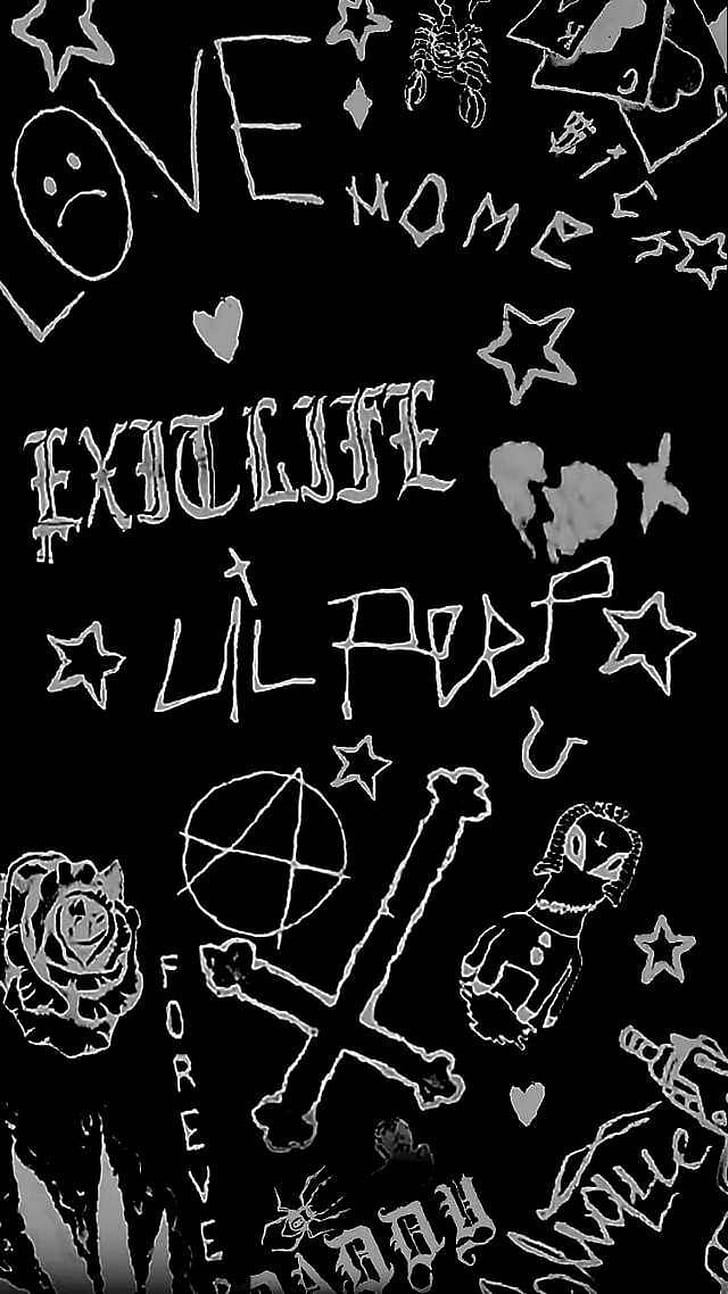 LOVE
HOME
EXIT LIFE
LIL PEEP
FOREVER
DADDY